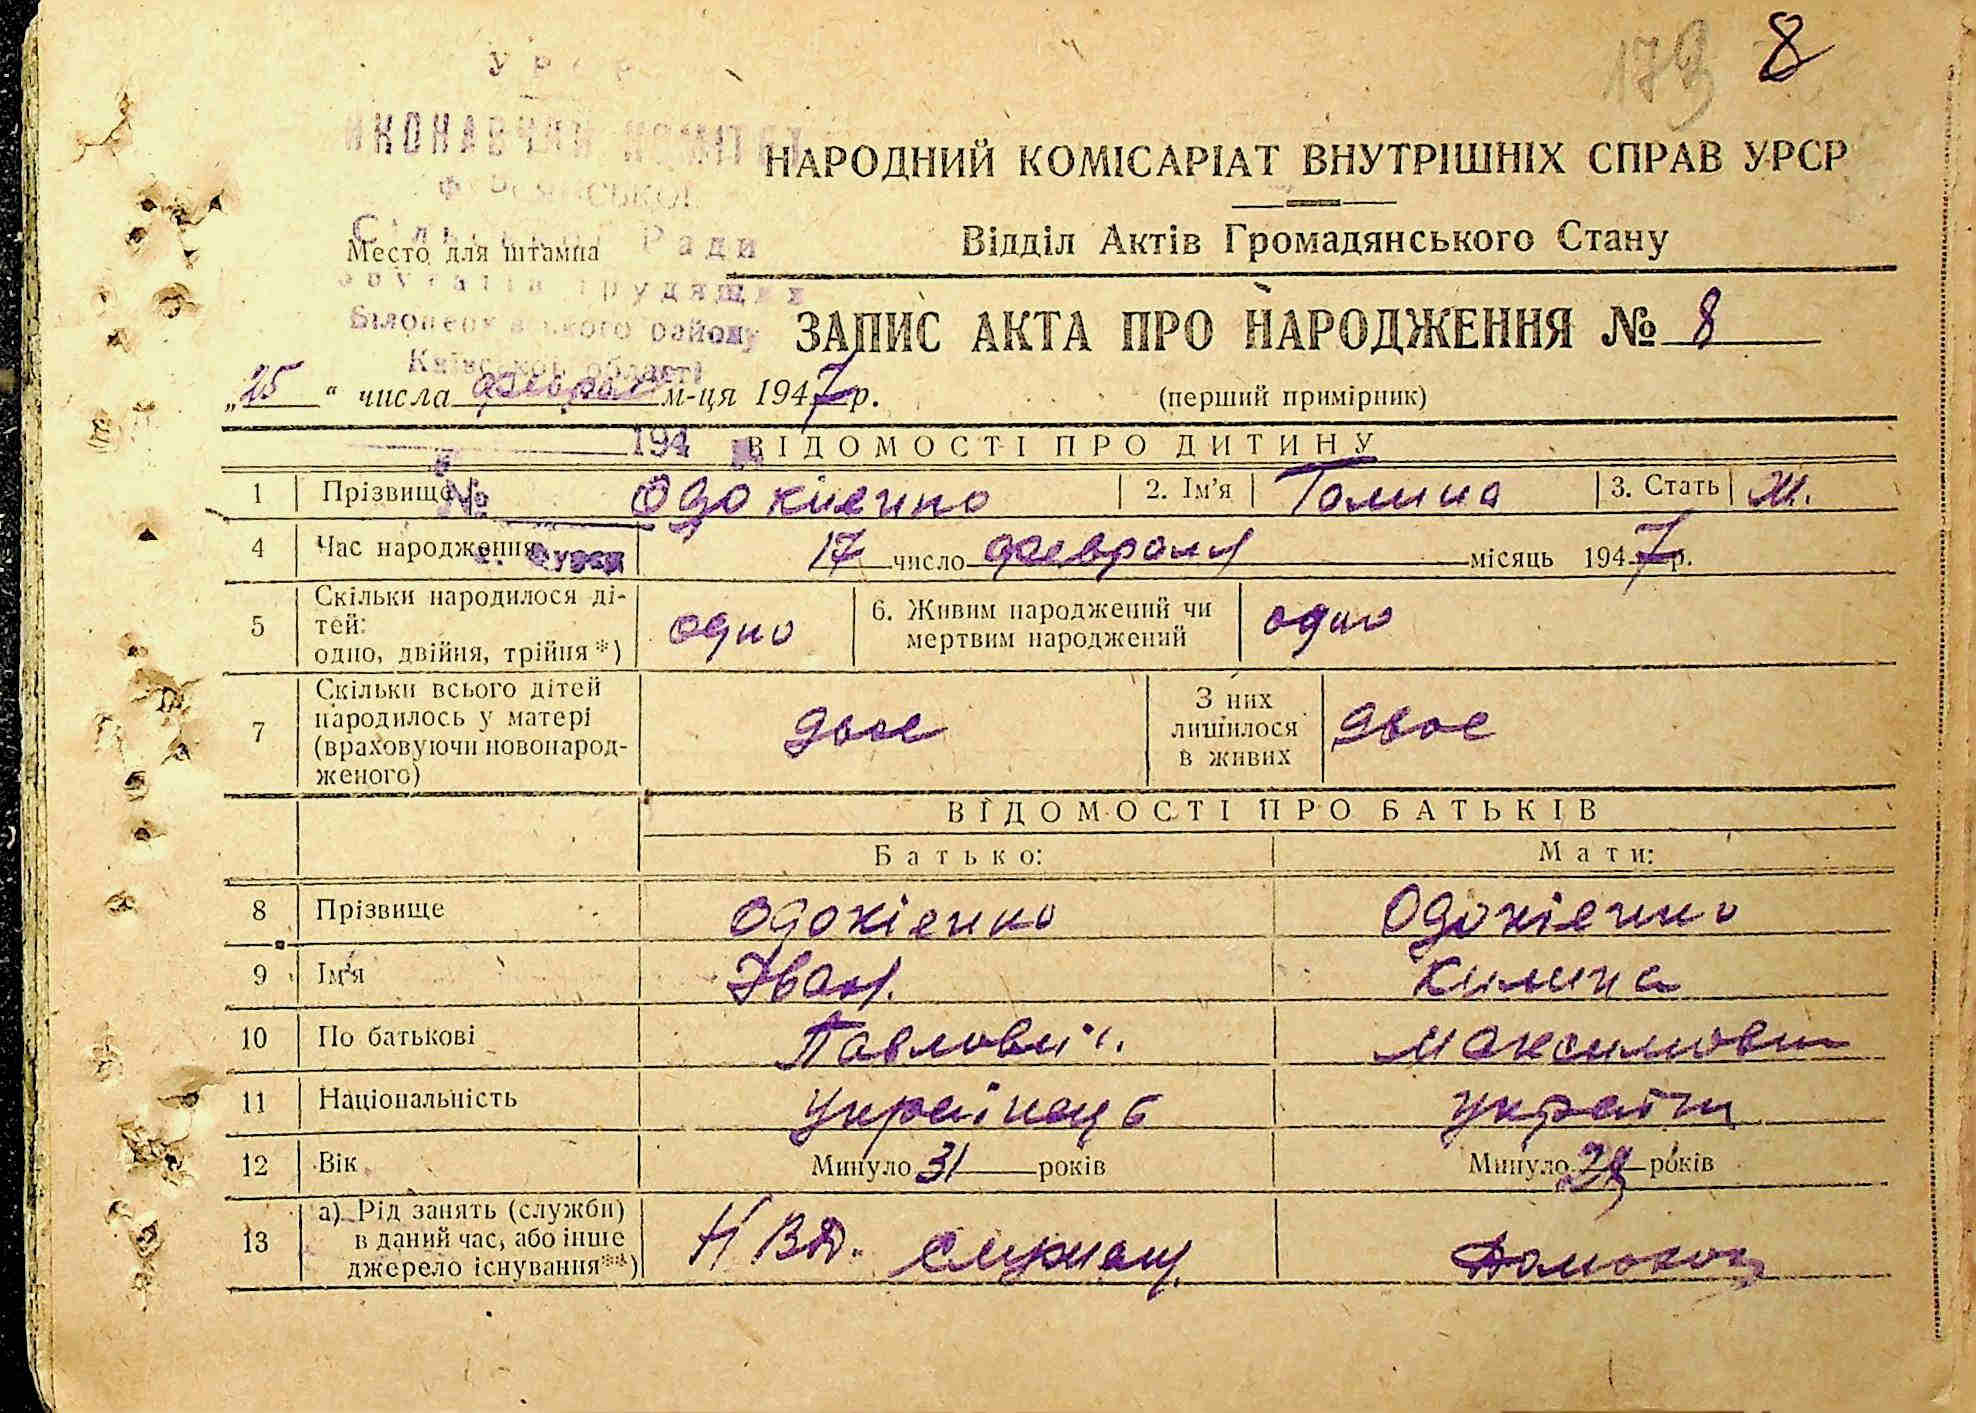 179 8
УРСР
ИКОНАВЧИЙ КОМІТЕТ
НАРОДНИЙ КОМІСАРІАТ ВНУТРІШНІХ СПРАВ УРСР
Сільської Ради
Место для штампа
Відділ Актів Громадянського Стану
трудящих
Білоцерківського району
Київської області
ЗАПИС АКТА ПРО НАРОДЖЕННЯ № 8
„25“ числа феврал м-ця 1947 р.
(перший примірник)
194
ВІДОМОСТІ ПРО ДИТИНУ
1 Прізвище Одокиенко 2. Ім’я Галина 3. Стать Ж.
№
4 Час народження 17 число февраля місяць 1947 р.
с. Фурси
5 Скільки народилося ді-
тей:
одно, двійня, трійня*) одно 6. Живим народжений чи
мертвим народжений одно
7 Скільки всього дітей
народилось у матері
(враховуючи новонарод-
женого) двое З них
лишилося
в живих двое
ВІДОМОСТІ ПРО БАТЬКІВ
Батько: Мати:
8 Прізвище Одокіенко Одокіенко
9 Ім’я Іван. Килина
10 По батькові Павлович. Максимовн
11 Національність українець україн
12 Вік Минуло 31 років Минуло 29 років
13 а) Рід занять (служби)
в даний час, або інше
джерело існування**) служащ Домохоз